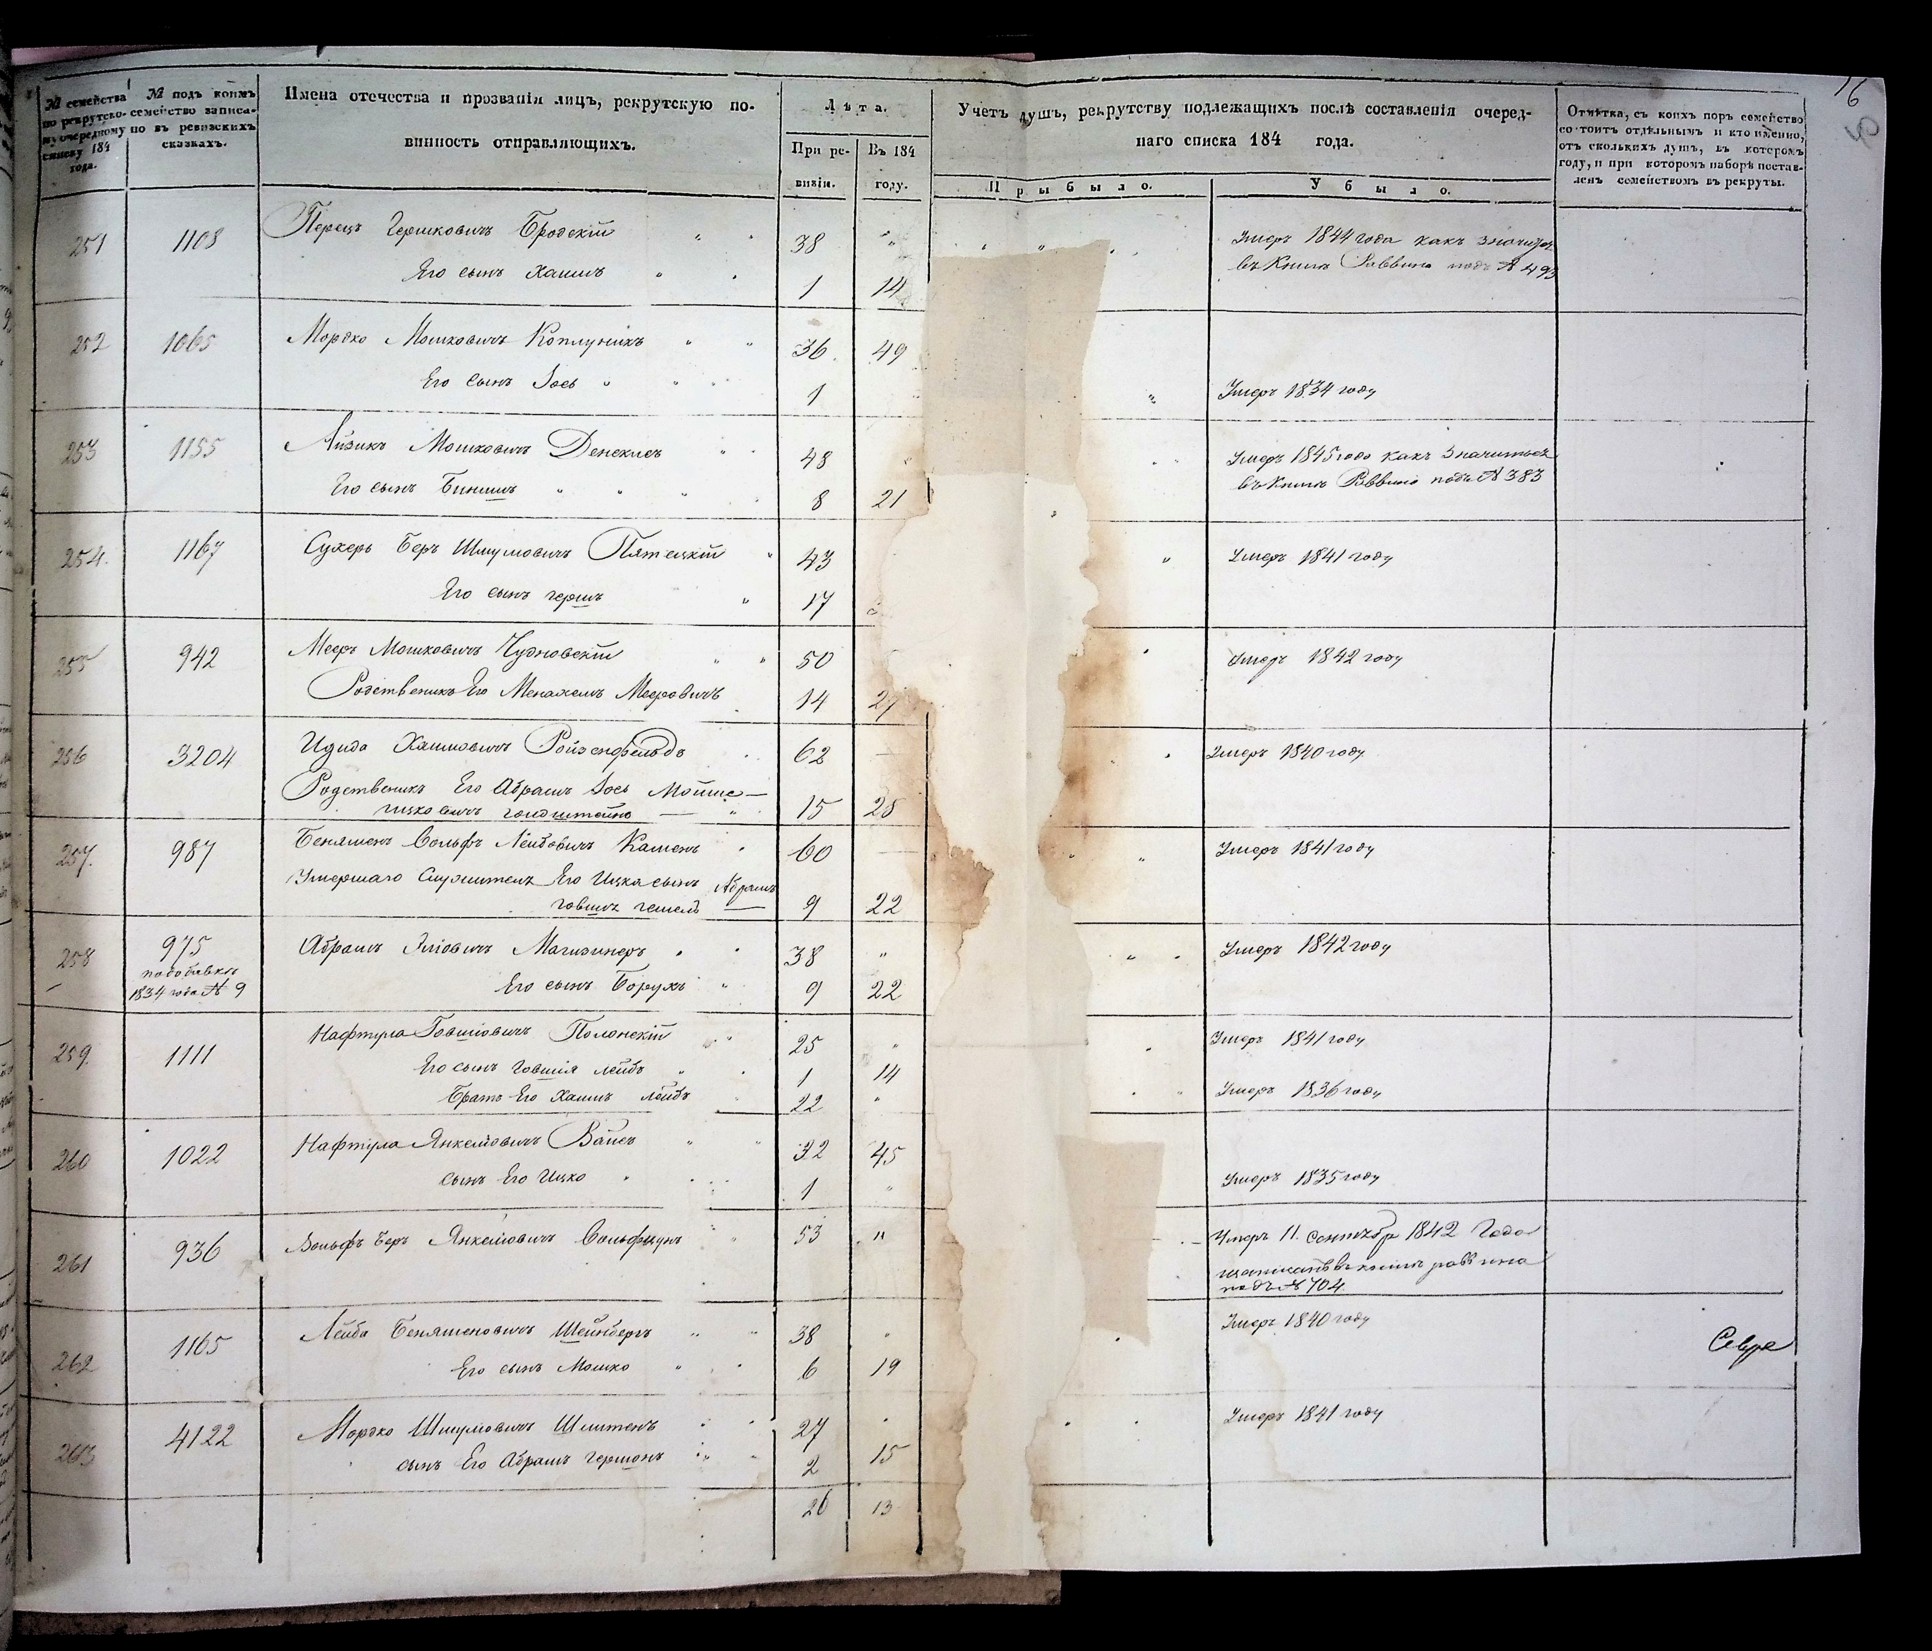 16
№ семейства по рекрутско- му очередному списку 184 года.
№ подъ коимъ семейство записа- но въ ревизскихъ сказкахъ.
Имена отечества и прозванія лицъ, рекрутскую по-
винность отправляющихъ.
Лѣта.
При ре- визіи.
Въ 184 году.
Учетъ душъ, рекрутству подлежащихъ послѣ составленія очеред-
наго списка 184 года.
Прыбыло.
Убыло.
Отмѣтка, съ коихъ поръ семейство
состоитъ отдѣльнымъ и кто именно,
отъ сколькихъ душъ, въ котеромъ
году, и при которомъ наборѣ постав-
ленъ семействомъ въ рекруты.
251 1108 Перецъ Гершковичъ Бродскій 38 Умеръ 1844 года какъ значится
въ Книгѣ Раввина подъ № 493
Его сынъ Хаимъ 1 14
252 1065 Мордко Мошковичъ Каплунникъ 36 49
Его сынъ Іось 1 Умеръ 1834 году
253 1155 Айзикъ Мошковичъ 48 Умеръ 1845 года какъ значиться
въ Книгѣ Раввина подъ № 383
Его сынъ Бинишъ 8 21
254. 1167 Сухеръ Беръ Шмулювичъ Пятецкій 43 Умеръ 1841 году
Его сынъ Гершъ 17
255 942 Мееръ Мошковичъ Чудновскій 50 Умеръ 1842 году
Родственикъ Его Менахемъ Мееровичъ 14 27
256 3204 Юдида Хаимовичъ Ройзенфельдъ 62 Умеръ 1840 году
Родственикъ Его Абрамъ Іось Мошке-
ицковичъ Гольдштейнъ 15 28
257. 987 Беняменъ Вольфъ Лейбовичъ Каменъ 60 Умеръ 1841 году
Умершаго Служителя Его Ицка сынъ Абрамъ
9 22
258 975 Абрамъ Эліовичъ Магизинеръ 38 Умеръ 1842 году
подобавкѣ
1834 года № 9
Его сынъ Борухъ 9 22
259. 1111 Нафтула Говшіовичъ Полонскій 25 Умеръ 1841 году
Его сынъ Говшія Лейбъ 1 14
Братъ Его Хаимъ Лейбъ 22 Умеръ 1836 году
260 1022 Нафтула Янкелювичъ Вайсъ 32 45
Сынъ Его Ицко 1 Умеръ 1835 году
261 936 Вольфъ Беръ Янкелювичъ Вольфзунъ 53 Умеръ 11. сентябр 1842 Года
записанъ въ книгѣ раввина
подъ № 704
262 1165 Лейба Беняменовичъ Шейнбергъ 38 Умеръ 1840 году
Его сынъ Мошко 6 19
263 4122 Мордко Шмулювичъ 27 Умеръ 1841 году
сынъ Его Абрамъ Гершонъ 2 15
26 13